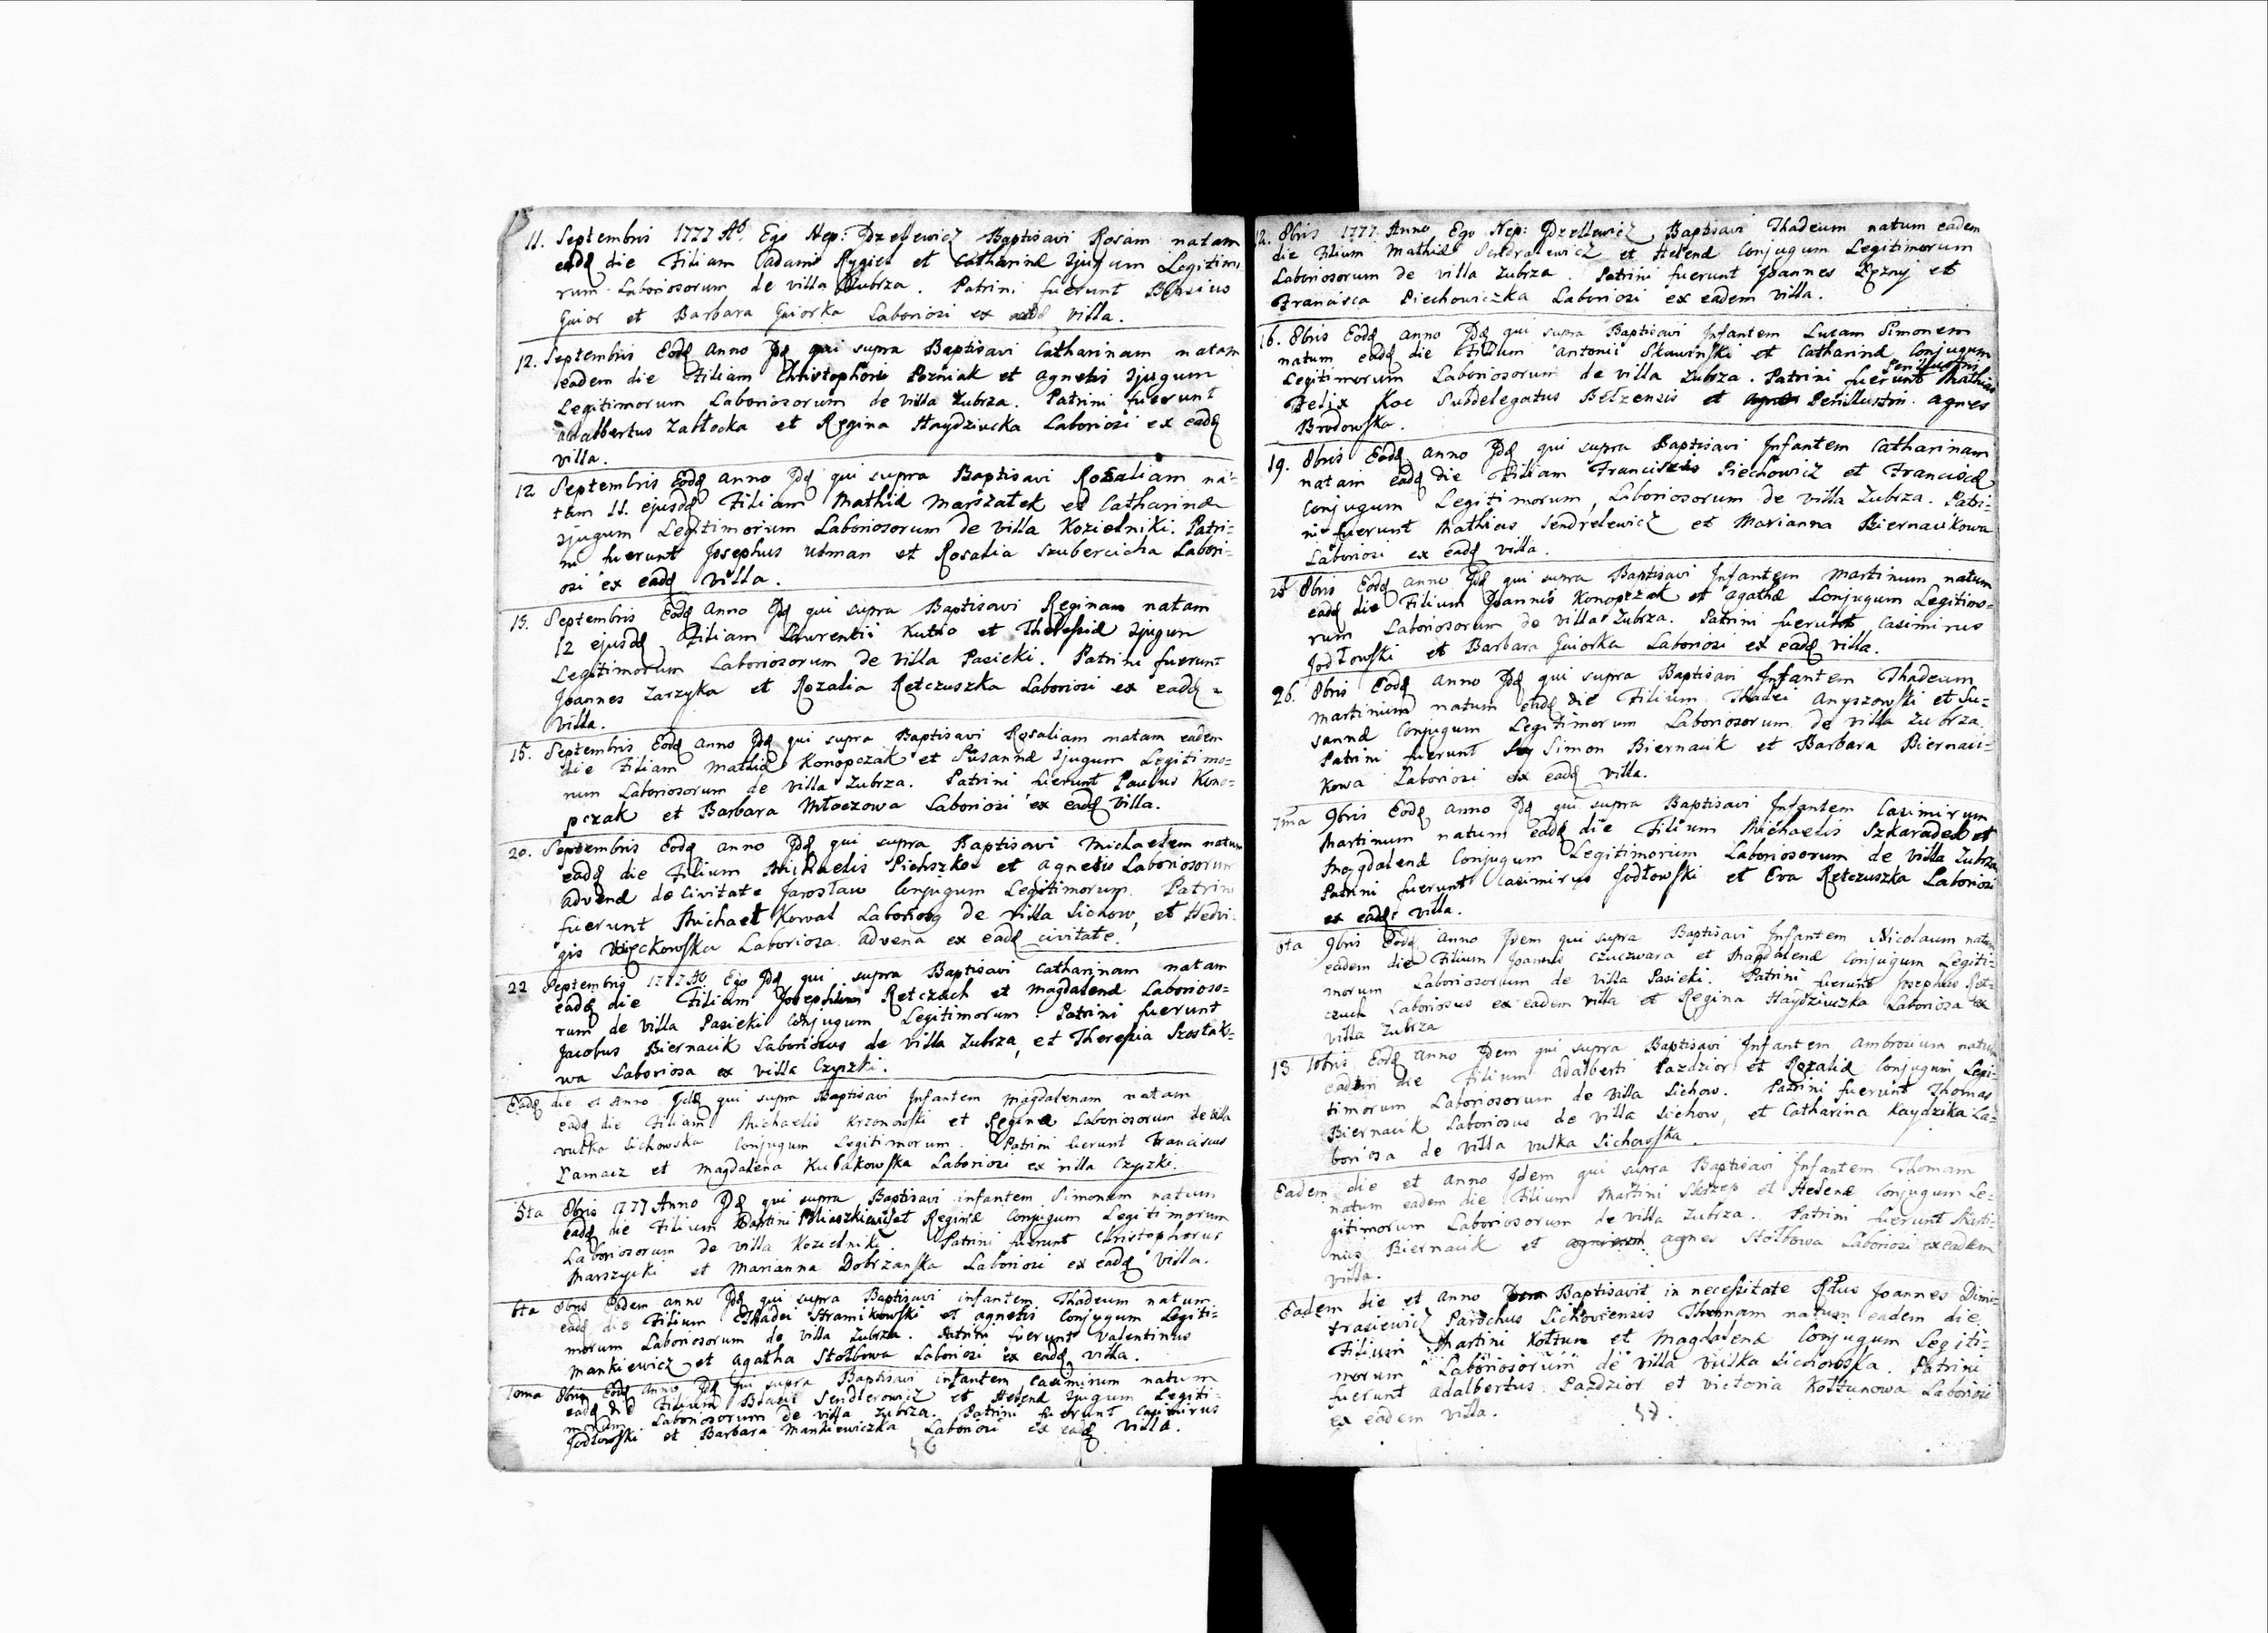 11. Septembris 1777 Ao. Ego Nep: Dzellewicz Baptisavi Rosam natam
eadq die Filiam Adami Rygiel et Catharinæ Jjugum Legitimo
rum Laboriosorum de villa Zubrza. Patrini fuerunt Blasius
Guior et Barbara Guiorka Laboriosi ex eadq villa.
12. Septembris Eodq Anno Jdq qui supra Baptisavi Catharinam natam
eadem die Filiam Christophori Pozniak et Agnetis Jjugum
Legitimorum Laboriosorum de villa Zubrza. Patrini fuerunt
Adalbertus Zabłocka et Regina Haydziucka Laboriosi ex eadq
villa.
12 Septembris Eodq Anno Jdq qui supra Baptisavi Rosaliam na=
tam 11. ejusdq Filiam Mathiæ Marszałek et Catharinæ
Jjugum Legitimorum Laboriosorum de villa Kozielniki. Patri=
ni fuerunt Josephus Utman et Rosalia Szubercicha Labori=
osi ex eadq villa.
15. Septembris Eodq Anno Jdq qui supra Baptisavi Reginam natam
12 ejusdq Filiam Laurentii Kutno et Theresiæ Jjugum
Legitimorum Laboriosorum de villa Pasieki. Patrini fuerunt
Joannes Zarzyka et Rozalia Retczuszka Laboriosi ex eadq =
villa.
15. Septembris Eodq Anno Jdq qui supra Baptisavi Rosaliam natam eadem
die Filiam Mathiæ Konopczak et Susannæ Jjugum Legitimo=
rum Laboriosorum de villa Zubrza. Patrini fuerunt Paulus Kono=
pczak et Barbara Młoczowa Laboriosi ex eadq villa.
20. Septembris Eodq Anno Jdq qui supra Baptisavi Michaelem natum
eadq die Filium Michaelis Pichszkoi et Agnetis Laboriosorum
Advenæ de Civitate Jarosław Conjugum Legitimorum. Patrini
fuerunt Michael Kowal Laboriosq de villa Sichow, et Hedvi=
gis Więckowska Laboriosa Advena ex eadq civitate.
22 Septembris 1777 Ao. Ego Jdq qui supra Baptisavi Catharinam natam
eadq die Filiam Josephi Retczuch et Magdalenæ Laborioso=
rum de villa Pasieki Conjugum Legitimorum. Patrini fuerunt
Jacobus Biernacik Laboriosus de villa Zubrza, et Theresia Szostak=
wa Laboriosa ex villa Czyszki.
Eadq die et Anno Jdq qui supra Baptisavi Infantem Magdalenam natam
eadq die Filiam Michaelis Krzonowski et Reginæ Laboriosorum de villa
vulka Sichowska Conjugum Legitimorum. Patrini fuerunt Franciscus
Łamasz et Magdalena Kubakowska Laboriosi ex villa Czyszki.
5ta 8bris 1777 Anno Jdq qui supra Baptisavi infantem Simonem natum
eadq die Filium Martini Pliaszkiewicz et Reginæ Conjugum Legitimorum
Laboriosorum de villa Kozielniki. Patrini fuerunt Christophorus
Marszycki et Marianna Dobrzanska Laboriosi ex eadq villa.
6ta 8bris Eodem anno Jdq qui supra Baptisavi infantem Thadeum natum
eadq die Filium Thadei Stramikowski et Agnetis Conjugum Legiti=
morum Laboriosorum de villa Zubrza. Patrini fuerunt Valentinus
Mankiewicz et Agatha Stołbowa Laboriosi ex eadq villa.
10ma 8bris Eodq Anno Jdq qui supra Baptisavi infantem Casimirum natum
eadq die Filium Blasii Sendlerowicz et Helenæ Jjugum Legiti=
morum Laboriosorum de villa Zubrza. Patrini fuerunt Casimirus
Jodłowski et Barbara Mankiewiczka Laboriosi ex eadq villa.
12. 8bris 1777. Anno Ego Nep: Dzellewicz Baptisavi Thadeum natum eadem
die Filium Mathiæ Sendralewicz et Helenæ Conjugum Legitimorum
Laboriosorum de villa Zubrza. Patrini fuerunt Joannes Łężny et
Francisca Piechowiczka Laboriosi ex eadem villa.
16. 8bris Eodq Anno Jdq qui supra Baptisavi Infantem Lucam Simonem
natum eadq die Filium Antonii Skawinski et Catharinæ Conjugum
Legitimorum Laboriosorum de villa Zubrza. Patrini fuerunt Perillustris Mathias
Felix Koc Subdelegatus Bełzensis et Perillustri. Agnes
Brodowska.
19. 8bris Eodq Anno Jdq qui supra Baptisavi Infantem Catharinam
natam eadq die Filiam Francisci Piechowicz et Franciscæ
Conjugum Legitimorum, Laboriosorum de villa Zubrza. Patri=
ni fuerunt Mathias Sendrelewicz et Marianna Biernacikowa
Laboriosi ex eadq villa.
25 8bris Eodq Anno Jdq qui supra Baptisavi Infantem Martinum natum
eadq die Filium Joannis Konopczak et Agathæ Conjugum Legitimo=
rum Laboriosorum de villa Zubrza. Patrini fuerunt Casimirus
Jodłowski et Barbara Guiorka Laboriosi ex eadq villa.
26. 8bris Eodq Anno Jdq qui supra Baptisavi Infantem Thadeum
Martinum natum eadq die Filium Thadei Anyszowski et Su=
sannæ Conjugum Legitimorum Laboriosorum de villa Zubrza.
Patrini fuerunt Simon Biernacik et Barbara Biernaci=
kowa Laboriosi ex eadq villa.
7ma 9bris Eodq Anno Jdq qui supra Baptisavi Infantem Casimirum
Martinum natum eadq die Filium Michaelis Szkaradek et
Magdalenæ Conjugum Legitimorum Laboriosorum de villa Zubrza
Patrini fuerunt Casimirus Jodłowski et Eva Retczuszka Laboriosi
ex eadq villa.
9bris Eodq Anno Jdem qui supra Baptisavi Infantem Nicolaum natum
eadem die Filium Joannis Czuczwara et Magdalenæ Conjugum Legiti=
morum Laboriosorum de villa Pasieki. Patrini fuerunt Josephus Ret=
czuch Laboriosus ex eadem villa et Regina Haydziuczka Laboriosa ex
villa Zubrza
13 10bris Eodq Anno Jdem qui supra Baptisavi Infantem Ambrosium natum
eadem die Filium Adalberti Pazdzior et Rozaliæ Conjugum Legi=
timorum Laboriosorum de villa Sichow. Patrini fuerunt Thomas
Biernacik Laboriosus de villa Sichow, et Catharina Kaydzika La=
boriosa de villa vulka Sichowska.
Eadem die et Anno Jdem qui supra Baptisavi Infantem Thomam
natum eadem die Filium Martini Skrzep et Helenæ Conjugum Le=
gitimorum Laboriosorum de villa Zubrza. Patrini fuerunt Marti=
nus Biernacik et Agnes Stołbowa Laboriosi ex eadem
villa.
Eadem die et anno Baptisavit in necessitate Rdus Joannes Dimi=
trasiewicz Parochus Sichoviensis Thomam natum eadem die
Filium Martini Kołtun et Magdalenæ Conjugum Legiti=
morum Laboriosorum de villa vulka Sichowska. Patrini
fuerunt Adalbertus Pazdzior et Victoria Kołtunowa Laboriosi
ex eadem villa.